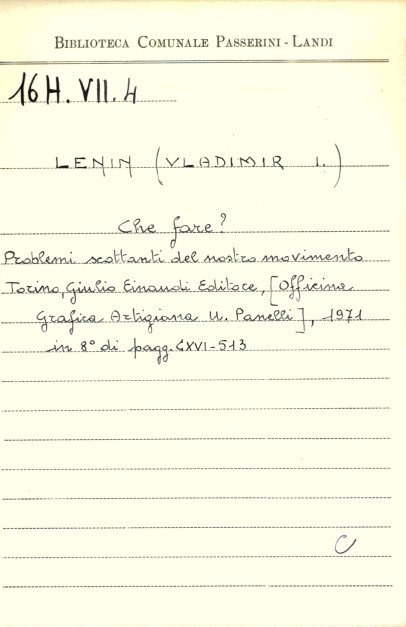 BIBLIOTECA COMUNALE PASSERINI - LANDI
16 H. VII. 4
LENIN (VLADIMIR I.)
Che fare?
Problemi scottanti del nostro movimento
Torino, Giulio Einaudi Editore, [Officina
Grafica Artigiana U. Panelli], 1971
in 8° di pagg. CXVI-513
C